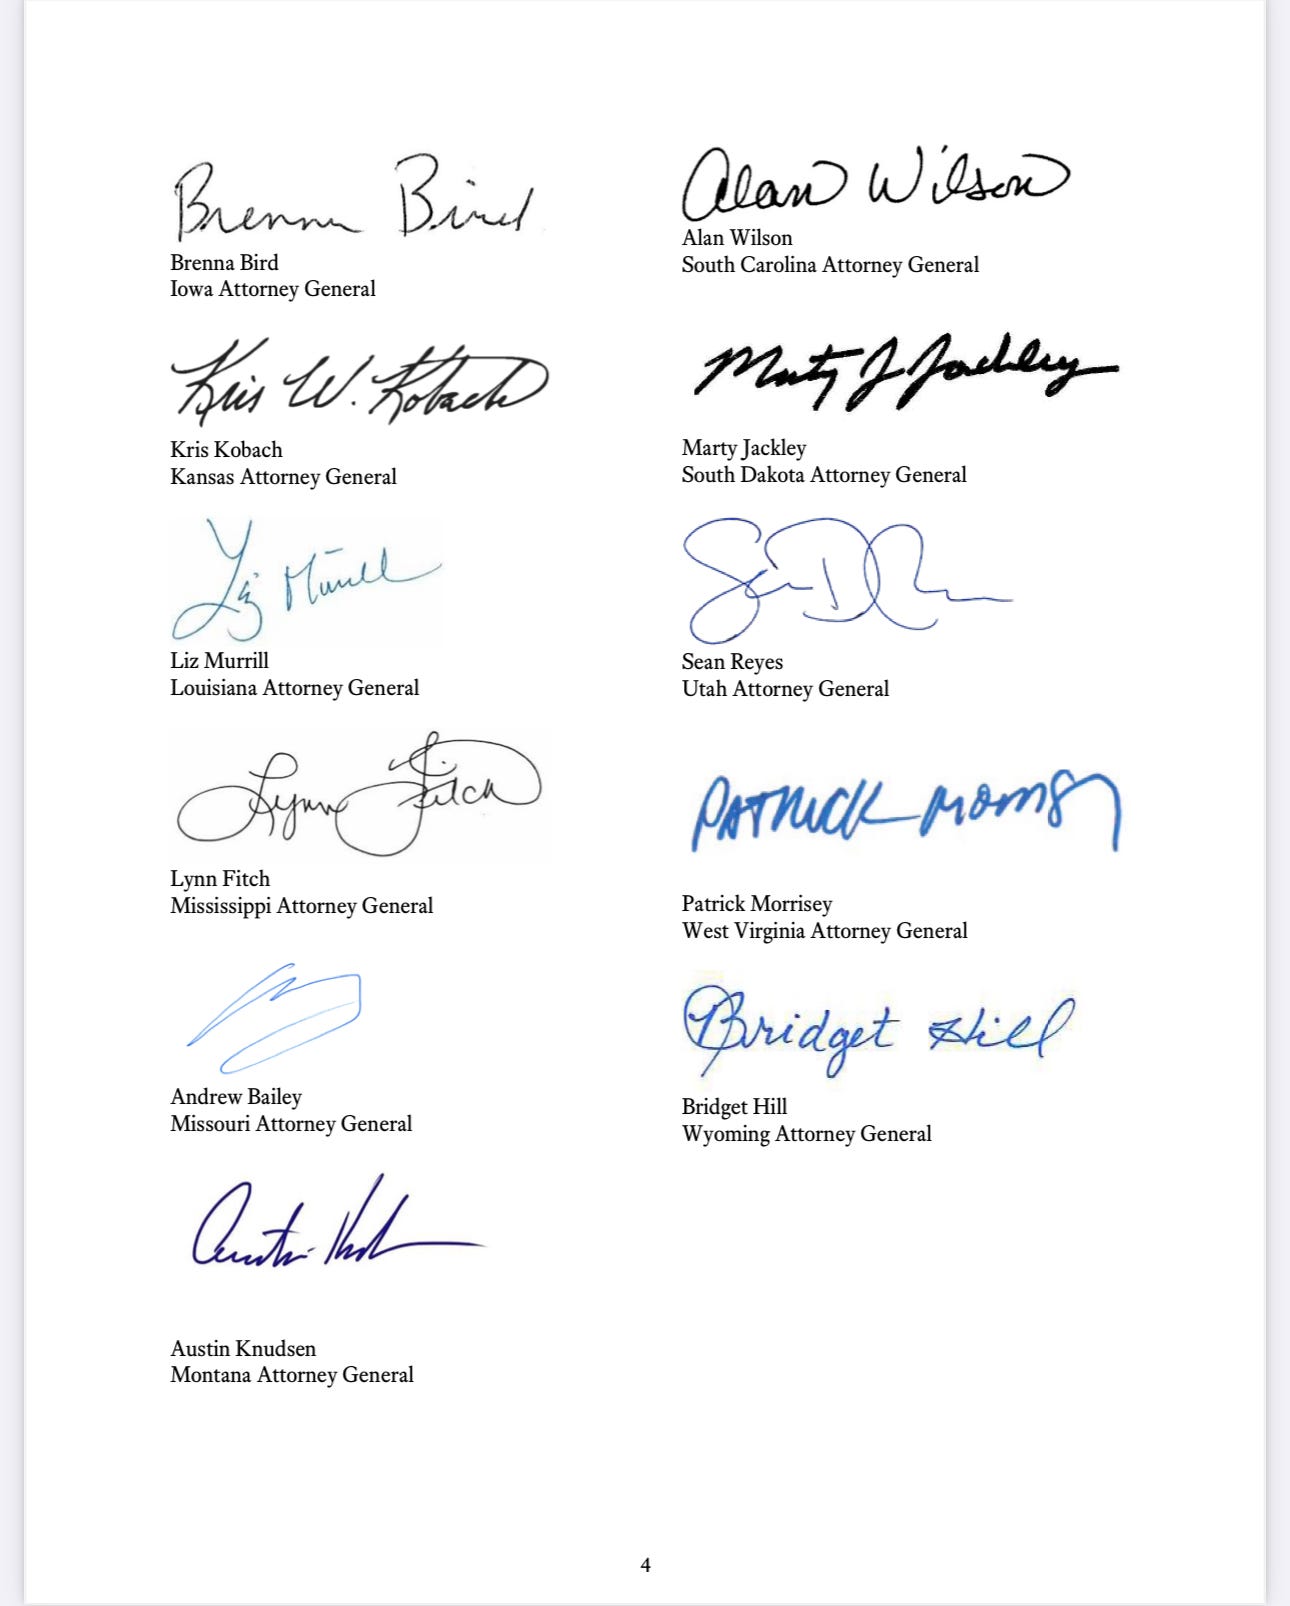 Brenna Bird
Brenna Bird
Iowa Attorney General
Kris W. Kobach
Kris Kobach
Kansas Attorney General
Liz Murrill
Liz Murrill
Louisiana Attorney General
Lynn Fitch
Lynn Fitch
Mississippi Attorney General
Andrew Bailey
Missouri Attorney General
Austin Knudsen
Montana Attorney General
Alan Wilson
Alan Wilson
South Carolina Attorney General
Marty J Jackley
Marty Jackley
South Dakota Attorney General
Sean Reyes
Utah Attorney General
Patrick Morrisey
West Virginia Attorney General
Bridget Hill
Bridget Hill
Wyoming Attorney General
4